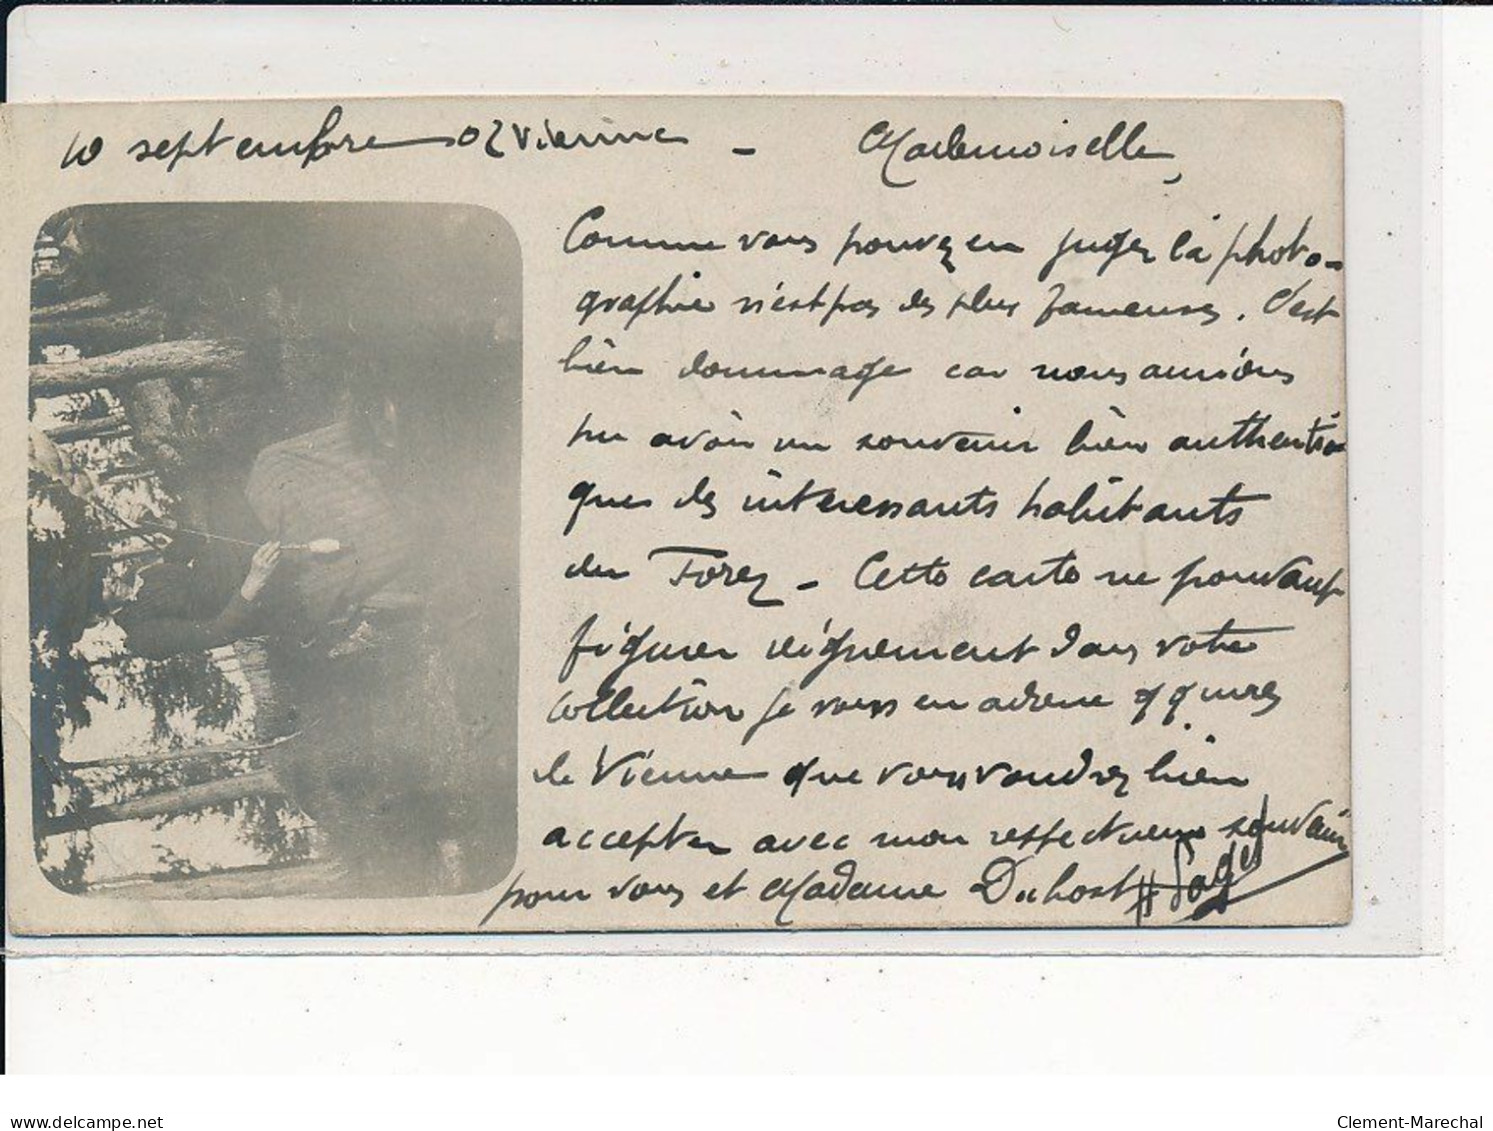 10 septembre 02 Vienne - Mademoiselle,
Comme vous pouvez en juger la photo-
graphie n'est pas des plus fameuses. C'est
bien dommage car nous aurions
pu avoir un souvenir bien authenti-
ques des interessants habitants
du Forez - Cette carte ne pouvant
figurer dignement dans votre
collection je vous en adresse
de Vienne que vous voudrez bien
accepter avec mon respectueux souvenir
pour vous et Madame Duhort
www.delcampe.net
Clement-Marechal